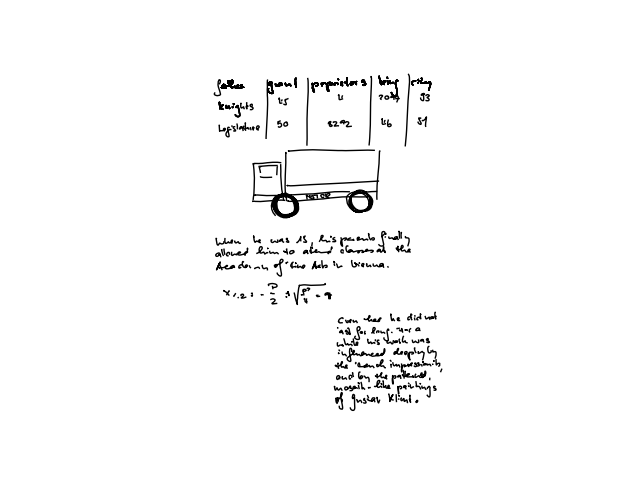 father grant proprietors king
Knights 45 93
Legislature 50 46 51
When he was 15, his parents finally
allowed him to attend classes at the
Academy of Fine Arts in Vienna.
x1,2 = - p/2 ± √ p²/4 - q
Even here he did not
for long. For a
while his work was
influenced deeply by
the French impressionists,
and by the patterned,
mosaik-like paintings
of Gustav Klimt.